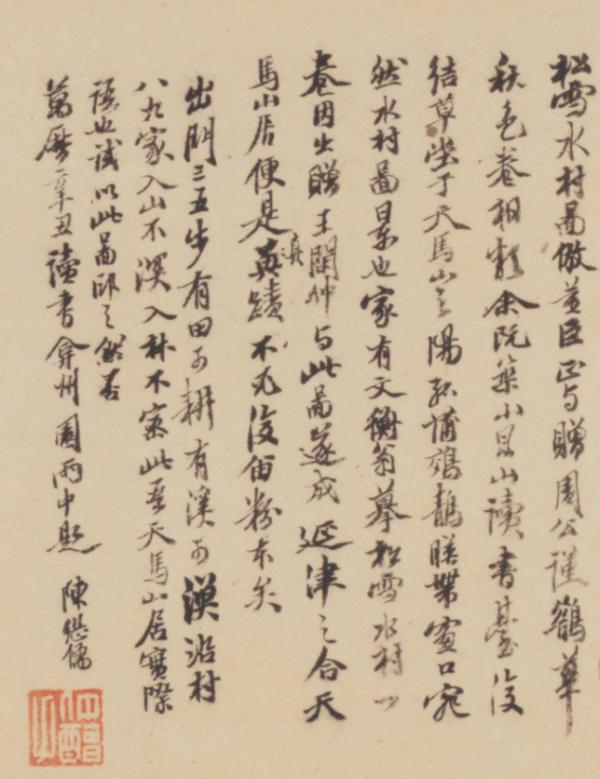 松雪水村圖倣董臣正與贈周公謹鵲華
秋色卷相類余既築小崑山讀書臺後
結草堂于天馬山之陽菰蒲鵁鶄映帶窗口宛
然水村圖景也家有文衡翁摹松雪水村一
卷因出贈王閏仲与此圖遂成延津之合天
馬山居便是真蹟不必復留粉本矣
出門三五步有田可耕有溪可漁沿村
八九家入山不深入林不密此吾天馬山居實際
語也試以此圖印之然否
萬曆辛丑讀書弇州園雨中題 陳繼儒